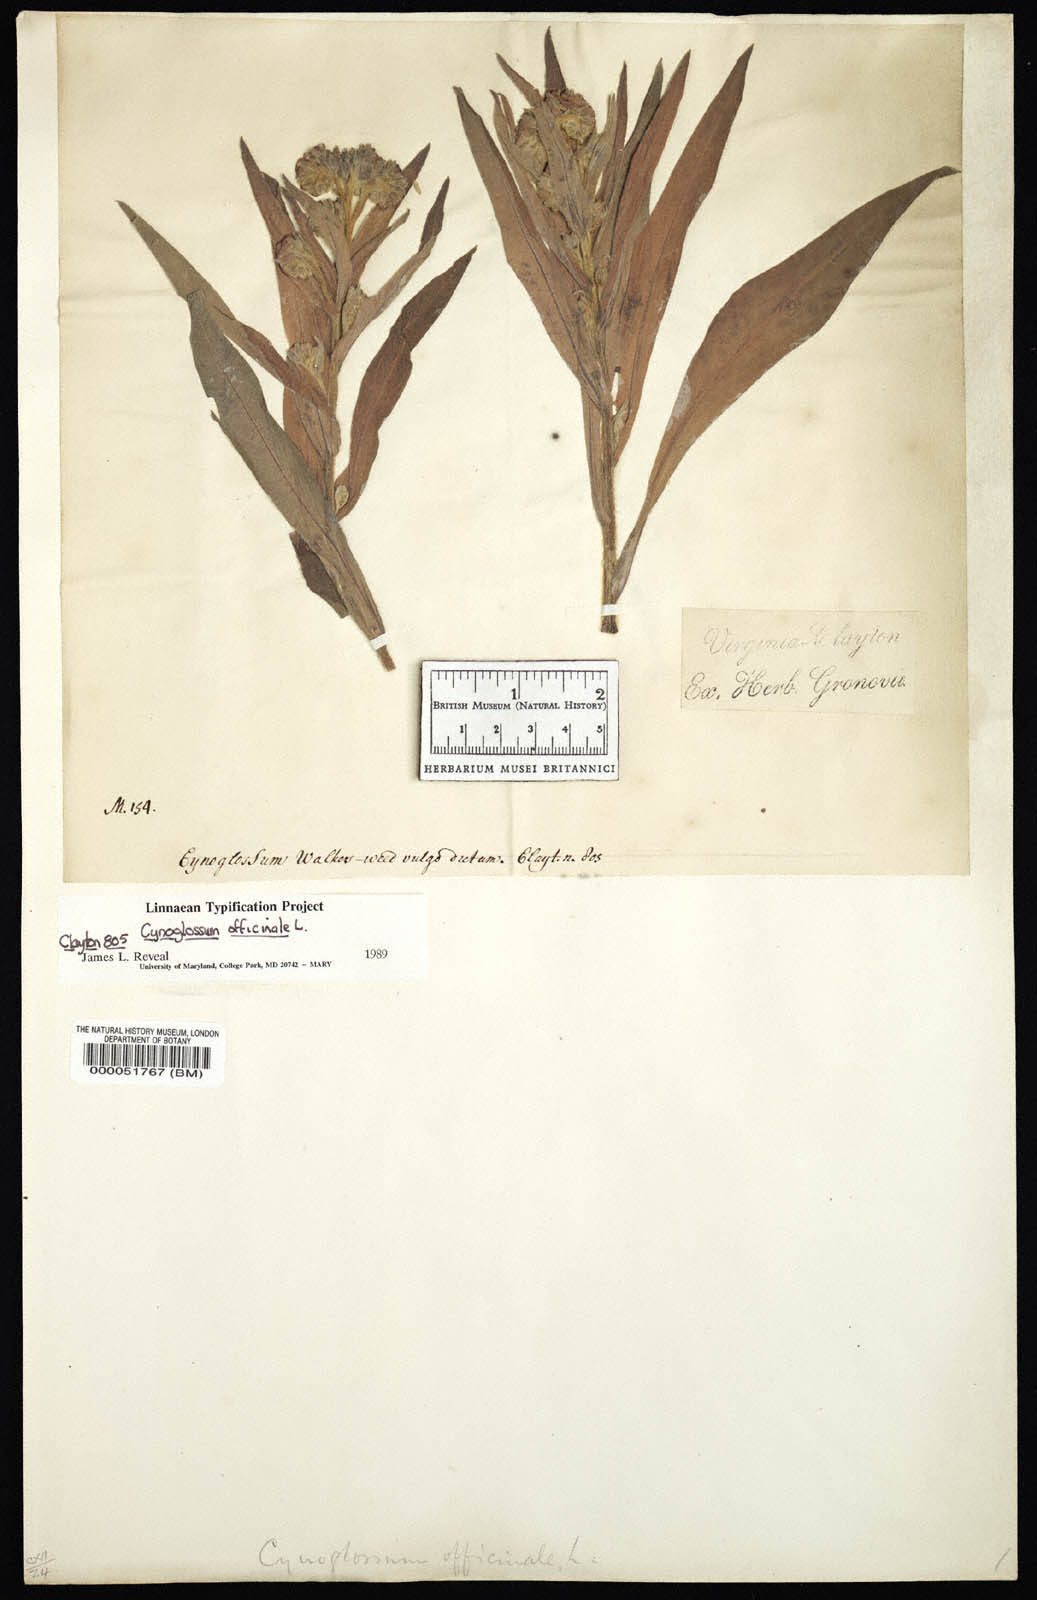 Virginia Clayton
Ex. Herb. Gronovii.
1 2
British Museum (Natural History)
1 2 3 4 5
HERBARIUM MUSEI BRITANNICI
M. 154.
Cynoglossum Walker-weed vulgo dictum. Clayt. n. 805
Linnaean Typification Project
Clayton 805 Cynoglossum officinale L.
James L. Reveal 1989
University of Maryland, College Park, MD 20742 – MARY
THE NATURAL HISTORY MUSEUM, LONDON
DEPARTMENT OF BOTANY
000051767 (BM)
Cynoglossum officinale, L.
24